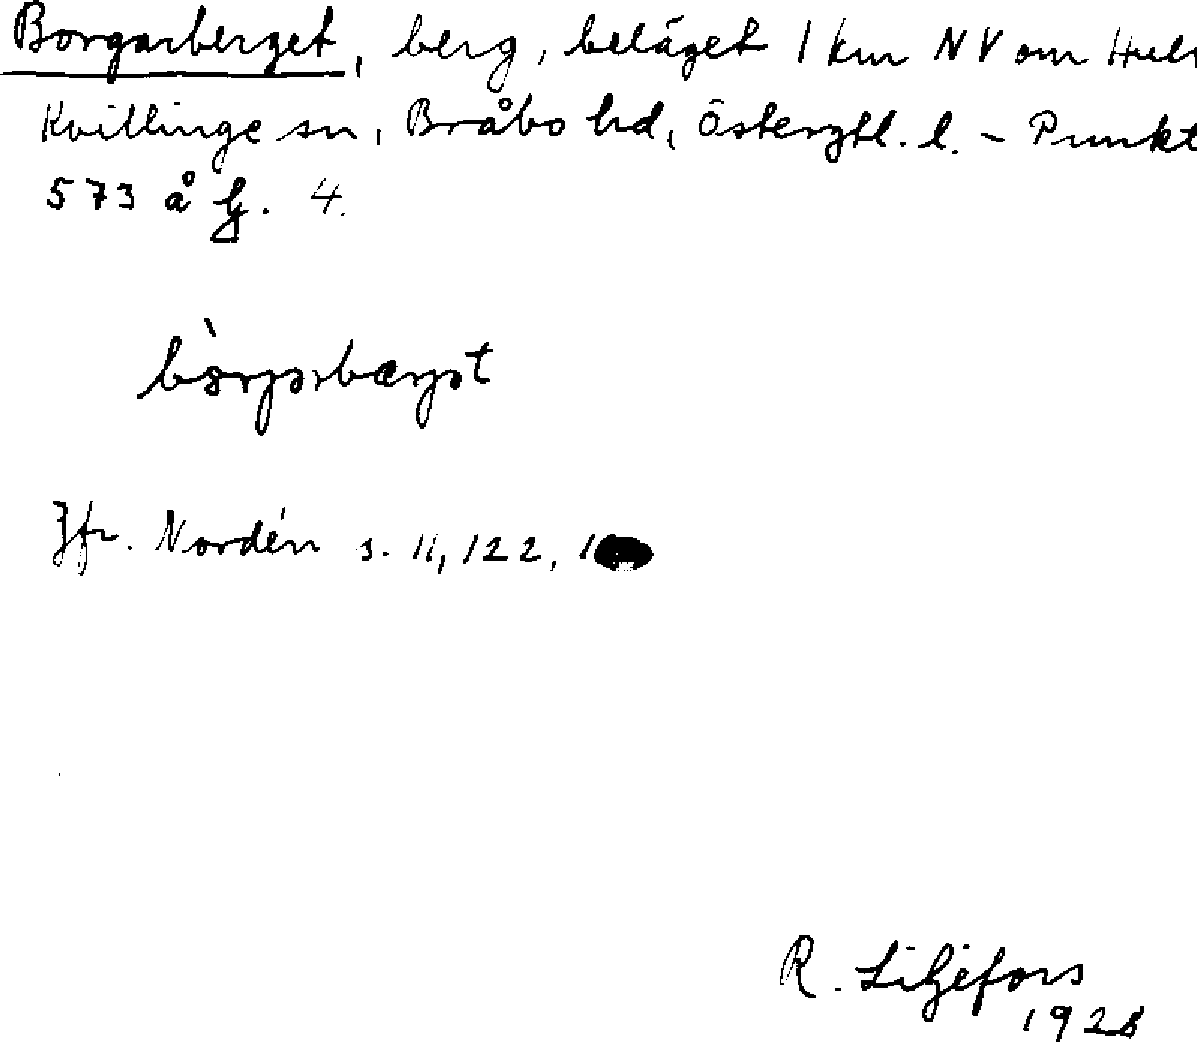 Borgarberget, berg, beläget 1 km NV om
Kvillinge sn, Bråbo hd, Östergtl. l. - Punkt
573 å 4.
Jfr. Nordén s. 11, 122,
R. Liljefors
1928